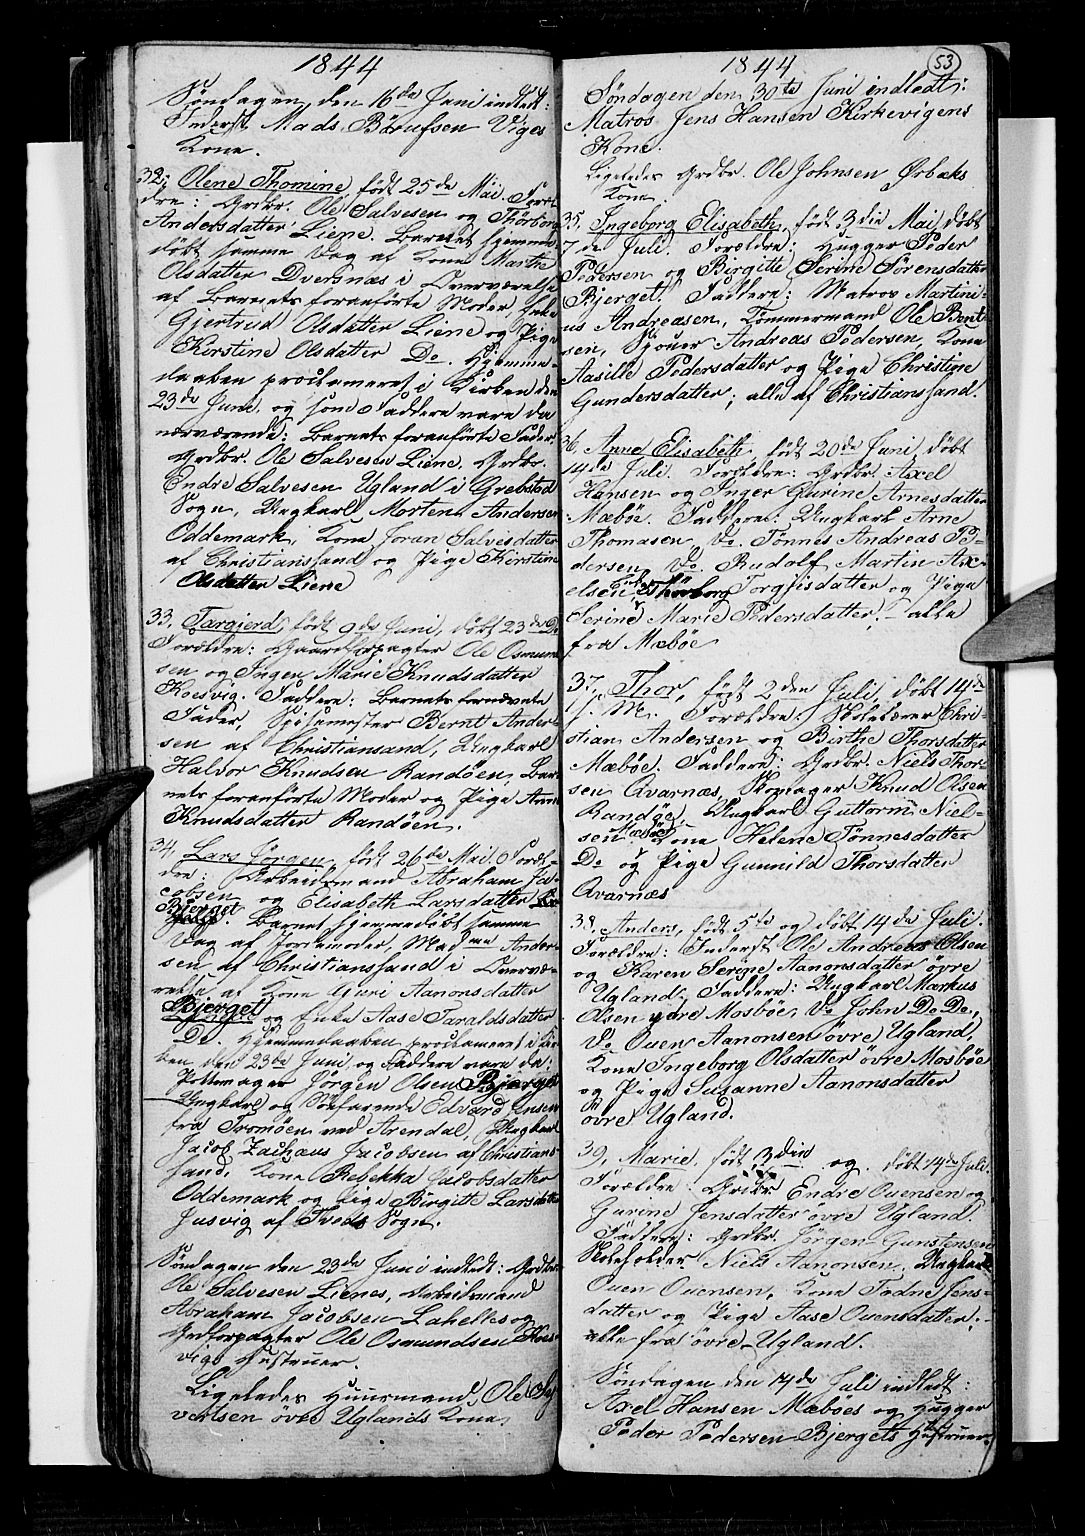 1844
Søndagen den 16de Juni indledt:
Inderst Mads Börufsen Viges
Kone.
32, Olene Thomine, født 25de Mai. Foræl-
dre: Grdbr. Ole Salvesen og Thorborg
Andersdatter Liene. Barnet hjemme-
døbt samme Dag af Kone Marthe
Olsdatter Dversnæs i Overværelse
af Barnets foranførte Moder, Enke
Gjertrud Olsdatter Liene og Pige
Kirstine Olsdatter Do. Hjemme-
daaben proclameret i Kirken den
23de Juni, og som Faddere vare da
nærværende: Barnets foranførte Fader
Grdbr. Ole Salvesen Liene, Grdbr.
Endre Salvesen Ugland i Grebsted
Sogn, Ungkarl Morten Andersen
Oddemark, Kone Joran Salvesdatter
af Christianssand og Pige Kirstine
Olsdatter Liene
33, Targjerd, født 9de Juni, døbt 23de Do
Forældre: Gaardforpagter Ole Osmund-
sen og Ingen Marie Knudsdatter
Koesvig. Faddere: Barnets fornævnte
Fader, Spisemester Bernt Ander-
sen af Christianssand, Ungkarl
Halvor Knudsen Randøen, Bar-
nets foranførte Moder og Pige Anne
Knudsdatter Randøen.
34, Lars Jörgen, født 26de Mai. Foræl-
dre: Arbeidsmand Abraham Ja-
cobsen og Elisabeth Larsdatter
Bjerget. Barnet hjemmedøbt samme
Dag af Jordemoder, Madme Ander-
sen af Christianssand i Overvæ-
relse af Kone Guri Aanonsdatter
Bjerget og Enke Aase Taraldsdatter
Do. Hjemmedaaben proclameret i Kir-
ken den 23de Juni, og Faddere vare da:
Pottemager Jörgen Olsen Bjerget
Ungkarl og Søefarende Edvard Jensen
fra Tromöen ved Arendal, Ungkarl
Jacob Zachaus Jacobsen af Christians-
sand, Kone Rebekka Jacobsdatter
Oddemark og Pige Birgitte Larsdatter
Jusvig af Tveds Sogn.
Søndagen den 23de Juni indledt: Grdbr.
Ole Salvesen Lienes, Arbeidsmand
Abraham Jacobsen Lahelles og
Grdforpagter Ole Osmundsen Koes-
vigs Hustruer.
Ligeledes Huusmand, Ole Sy-
vertsen övre Uglands Kone,
53
1844
Søndagen den 30te Juni indledt:
Matros Jens Hansen Kirkevigens
Kone.
Ligeledes Grdbr. Ole Johnsen Ørbæks
Kone
35, Ingeborg Elisabeth, født 3die Mai, døbt
7de Juli. Forældre: Hugger Peder
Pedersen og Birgitte Serine Sörensdatter
Bjerget. Faddere: Matros Martini-
us Andreasen, Tømmermand Ole Bent-
sen, Andreas Pedersen, Kone
Aasille Pedersdatter og Pige Christine
Gundersdatter; alle af Christianssand.
36, Anne Elisabeth, født 20de Juni, døbt
14de Juli. Forældre: Grdbr. Axel
Hansen og Inger Gurine Arnesdatter
Mæbøe. Faddere: Ungkarl Arne
Thomasen, Do Tønnes Andreas Pe-
dersen, Do Rudolf Martin Ax-
elsen, Thorborg Torgrisdatter og Pige
Serine Marie Pedersdatter, - alle
fra Mæbøe
37, Thor, født 2den Juli, døbt 14de
s. M. Forældre: Skolelærer Chri-
stian Andersen og Birthe Thorsdatter
Mæbøe. Faddere: Grdbr. Niels Thor-
sen Qvarnæs, Skomager Knud Olsen
Randøe, Ungkarl Guttorm Niel-
sen Mæbøe Kone Helene Tønnesdatter
Do og Pige Gunnild Thorsdatter
Qvarnæs
38, Anders, født 5te og døbt 14de Juli.
Forældre: Inderst Ole Andreas Olsen
og Karen Serine Aanonsdatter övre
Ugland. Faddere: Ungkarl Markus
Olsen ydre Mosbøe, Do John Do Do,
Do Ouen Aanonsen övre Ugland
Kone Ingeborg Olsdatter övre Mosbøe
og Pige Susanne Aanonsdatter
övre Ugland.
39, Marie, født 3die og døbt 14de Juli.
Forældre: Grdbr Endre Ouensen og
Gurine Jensdatter övre Ugland.
Faddere: Grdbr. Jörgen Gunstensen
Skoleholder Niels Aanonsen, Ungkarl
Ouen Ouensen, Kone Tadne Jens-
datter og Pige Aase Ouensdatter. -
alle fra övre Ugland.
Søndagen den 14de Juli indledt:
Axel Hansen Mæbøes og Hugger
Peder Pedersen Bjergets Hustruer.